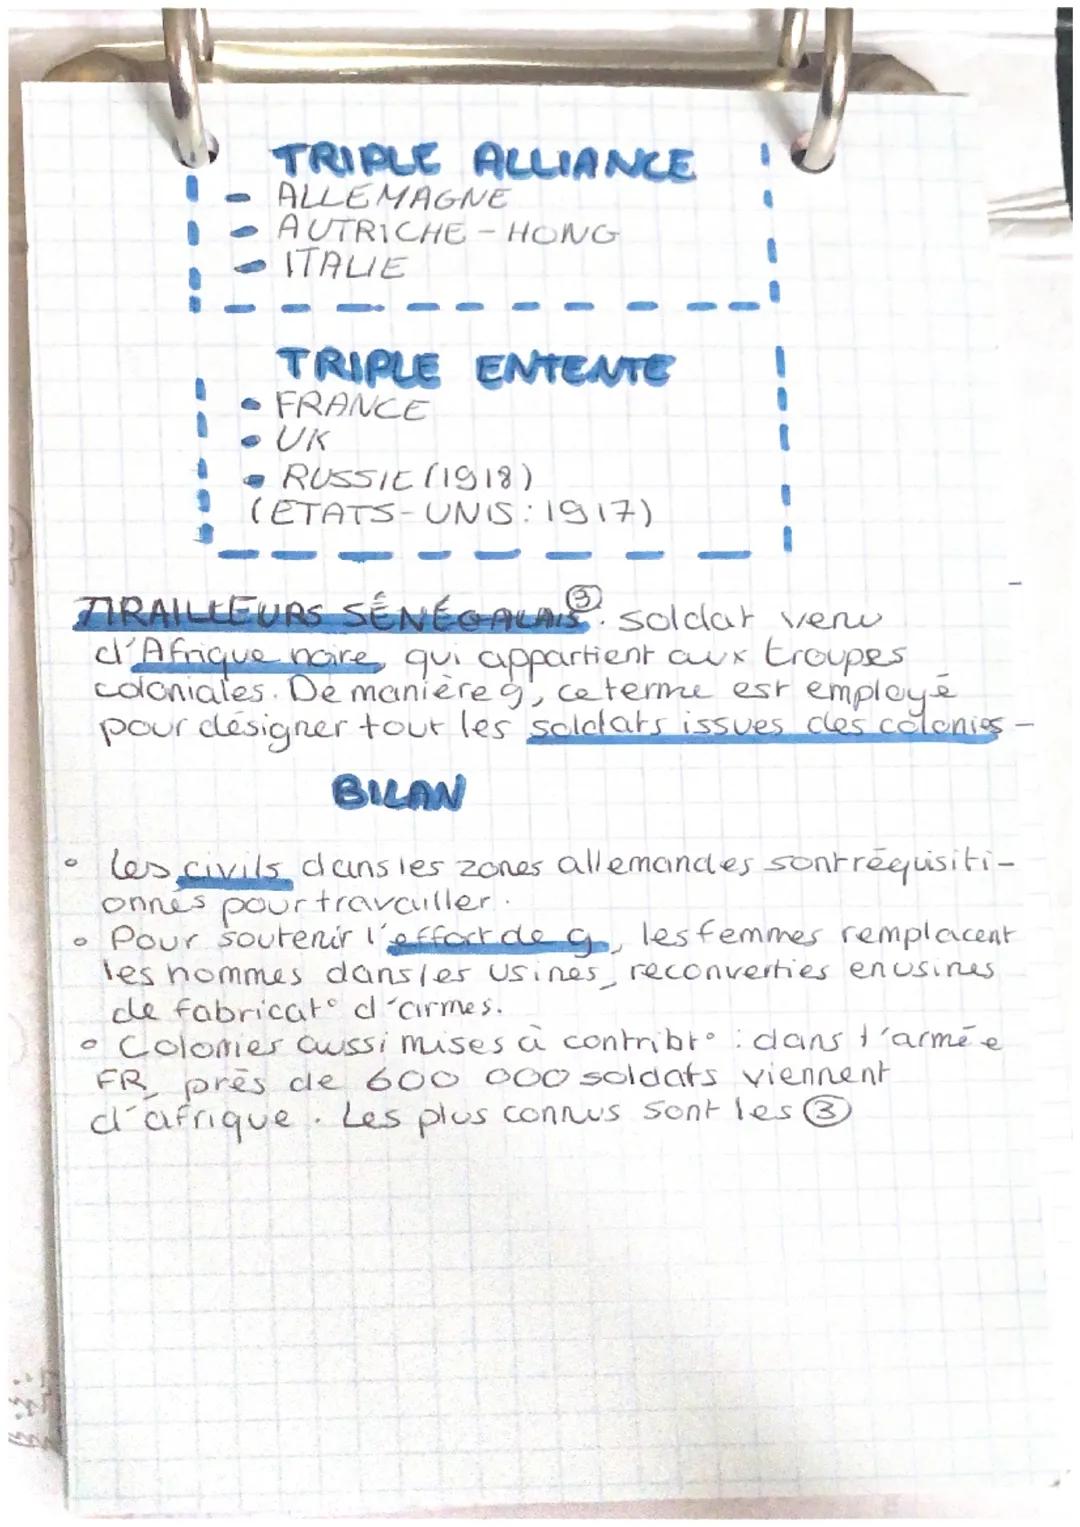 TRIPLE ALLIANCE
- ALLEMAGNE
- AUTRICHE-HONG
- ITALIE
TRIPLE ENTENTE
• FRANCE
• UK
• RUSSIE (1918)
(ETATS-UNIS: 1917)
TIRAILLEURS SÉNÉGALAIS ③: soldat venu
d'Afrique noire, qui appartient aux troupes
coloniales. De manière g, ce terme est employé
pour désigner tout les soldats issues des colonies
BILAN
• les civils dans les zones allemandes sont réquisiti-
onnés pour travailler.
• Pour soutenir l'effort de g, les femmes remplacent
les hommes dans les usines, reconverties en usines
de fabricat° d'armes.
• Colonies aussi mises à contribt° : dans l'armée
FR, près de 600 000 soldats viennent
d'afrique. Les plus connus sont les ③